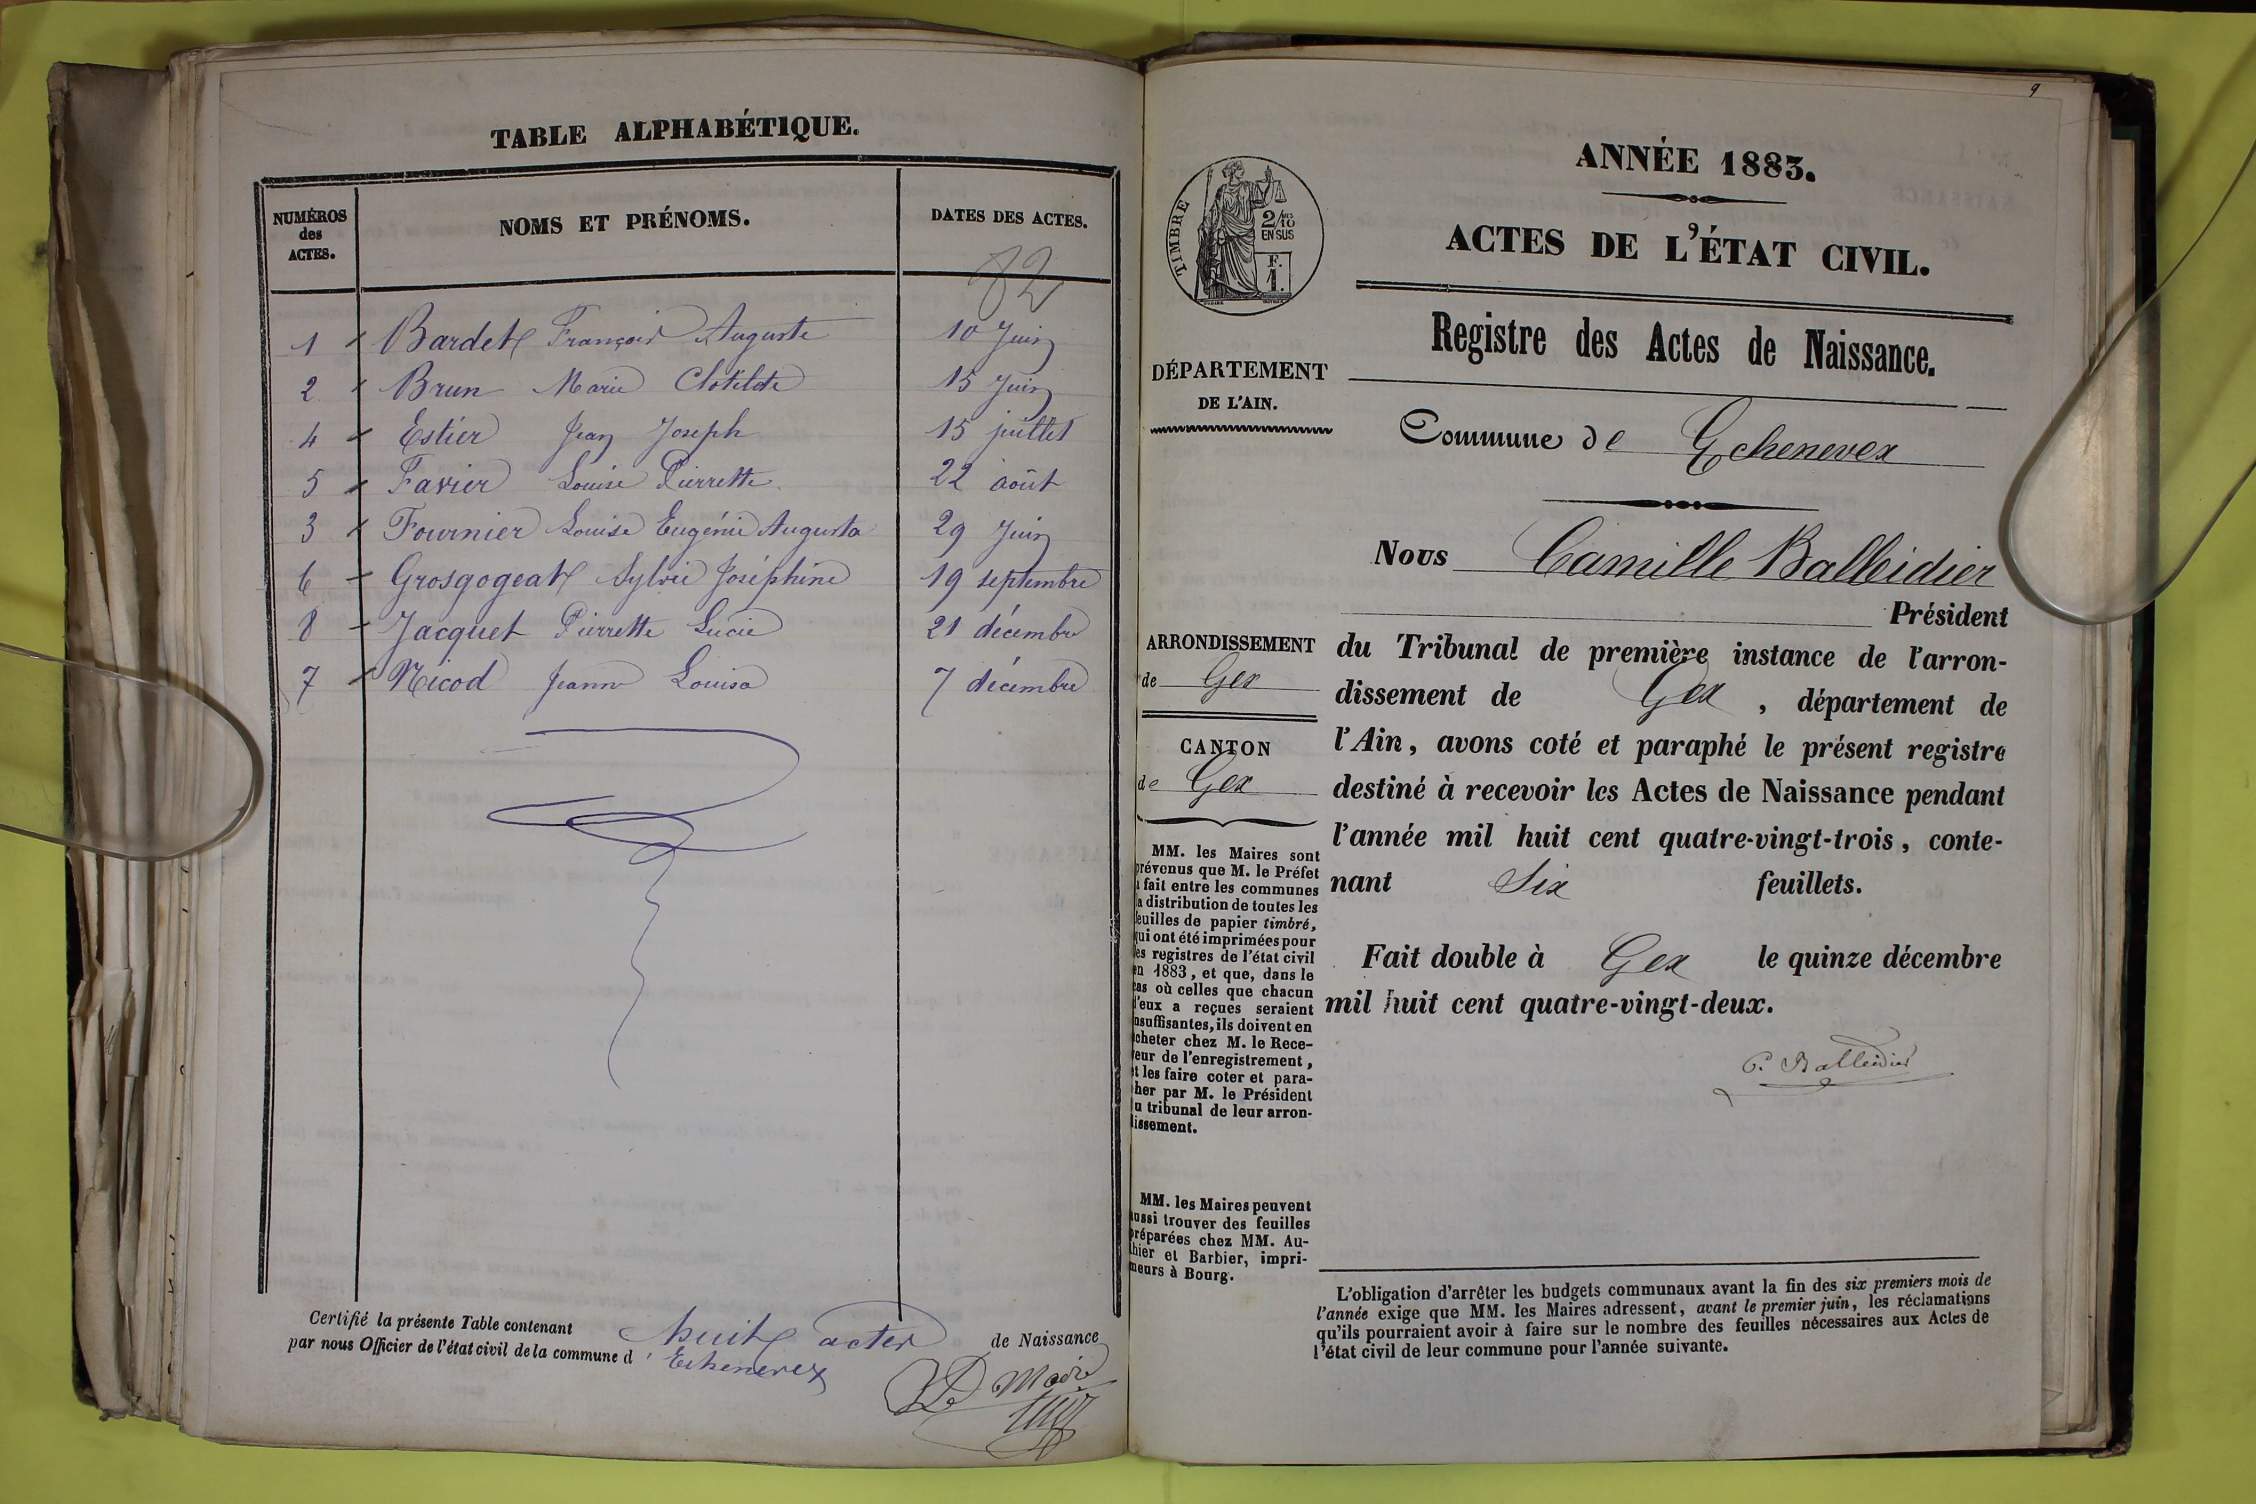 TABLE ALPHABÉTIQUE.
NUMÉROS
des
ACTES.
NOMS ET PRÉNOMS.
DATES DES ACTES.
82
1 Bardet François Auguste 10 Juin
2 Brun Marie Clotilde 15 Juin
4 Estier Jean Joseph 15 juillet
5 Favier Louise Pierrette 22 août
3 Fournier Louise Eugénie Augusta 29 Juin
6 Grosgogeat Sylvie Joséphine 19 septembre
8 Jacquet Pierrette Lucie 21 décembre
7 Nicod Jeanne Louisa 7 décembre
Certifié la présente Table contenant huit actes de Naissance
par nous Officier de l'état civil de la commune d'Echenevex
Le Maire
9
ANNÉE 1883.
ACTES DE L'ÉTAT CIVIL.
TIMBRE
2/10
EN SUS
F.
1.
Registre des Actes de Naissance.
DÉPARTEMENT
DE L'AIN.
Commune de Echenevex
Nous Camille Balleidier
Président
ARRONDISSEMENT
de Gex
CANTON
de Gex
du Tribunal de première instance de l'arron-
dissement de Gex, département de
l'Ain, avons coté et paraphé le présent registre
destiné à recevoir les Actes de Naissance pendant
l'année mil huit cent quatre-vingt-trois, conte-
nant Six feuillets.
Fait double à Gex le quinze décembre
mil huit cent quatre-vingt-deux.
C. Balleidier
MM. les Maires sont
prévenus que M. le Préfet
a fait entre les communes
la distribution de toutes les
feuilles de papier timbré,
qui ont été imprimées pour
les registres de l'état civil
en 1883, et que, dans le
cas où celles que chacun
d'eux a reçues seraient
insuffisantes, ils doivent en
acheter chez M. le Rece-
veur de l'enregistrement,
et les faire coter et para-
pher par M. le Président
du tribunal de leur arron-
dissement.
MM. les Maires peuvent
aussi trouver des feuilles
préparées chez MM. Au-
thier et Barbier, impri-
meurs à Bourg.
L'obligation d'arrêter les budgets communaux avant la fin des six premiers mois de
l'année exige que MM. les Maires adressent, avant le premier juin, les réclamations
qu'ils pourraient avoir à faire sur le nombre des feuilles nécessaires aux Actes de
l'état civil de leur commune pour l'année suivante.